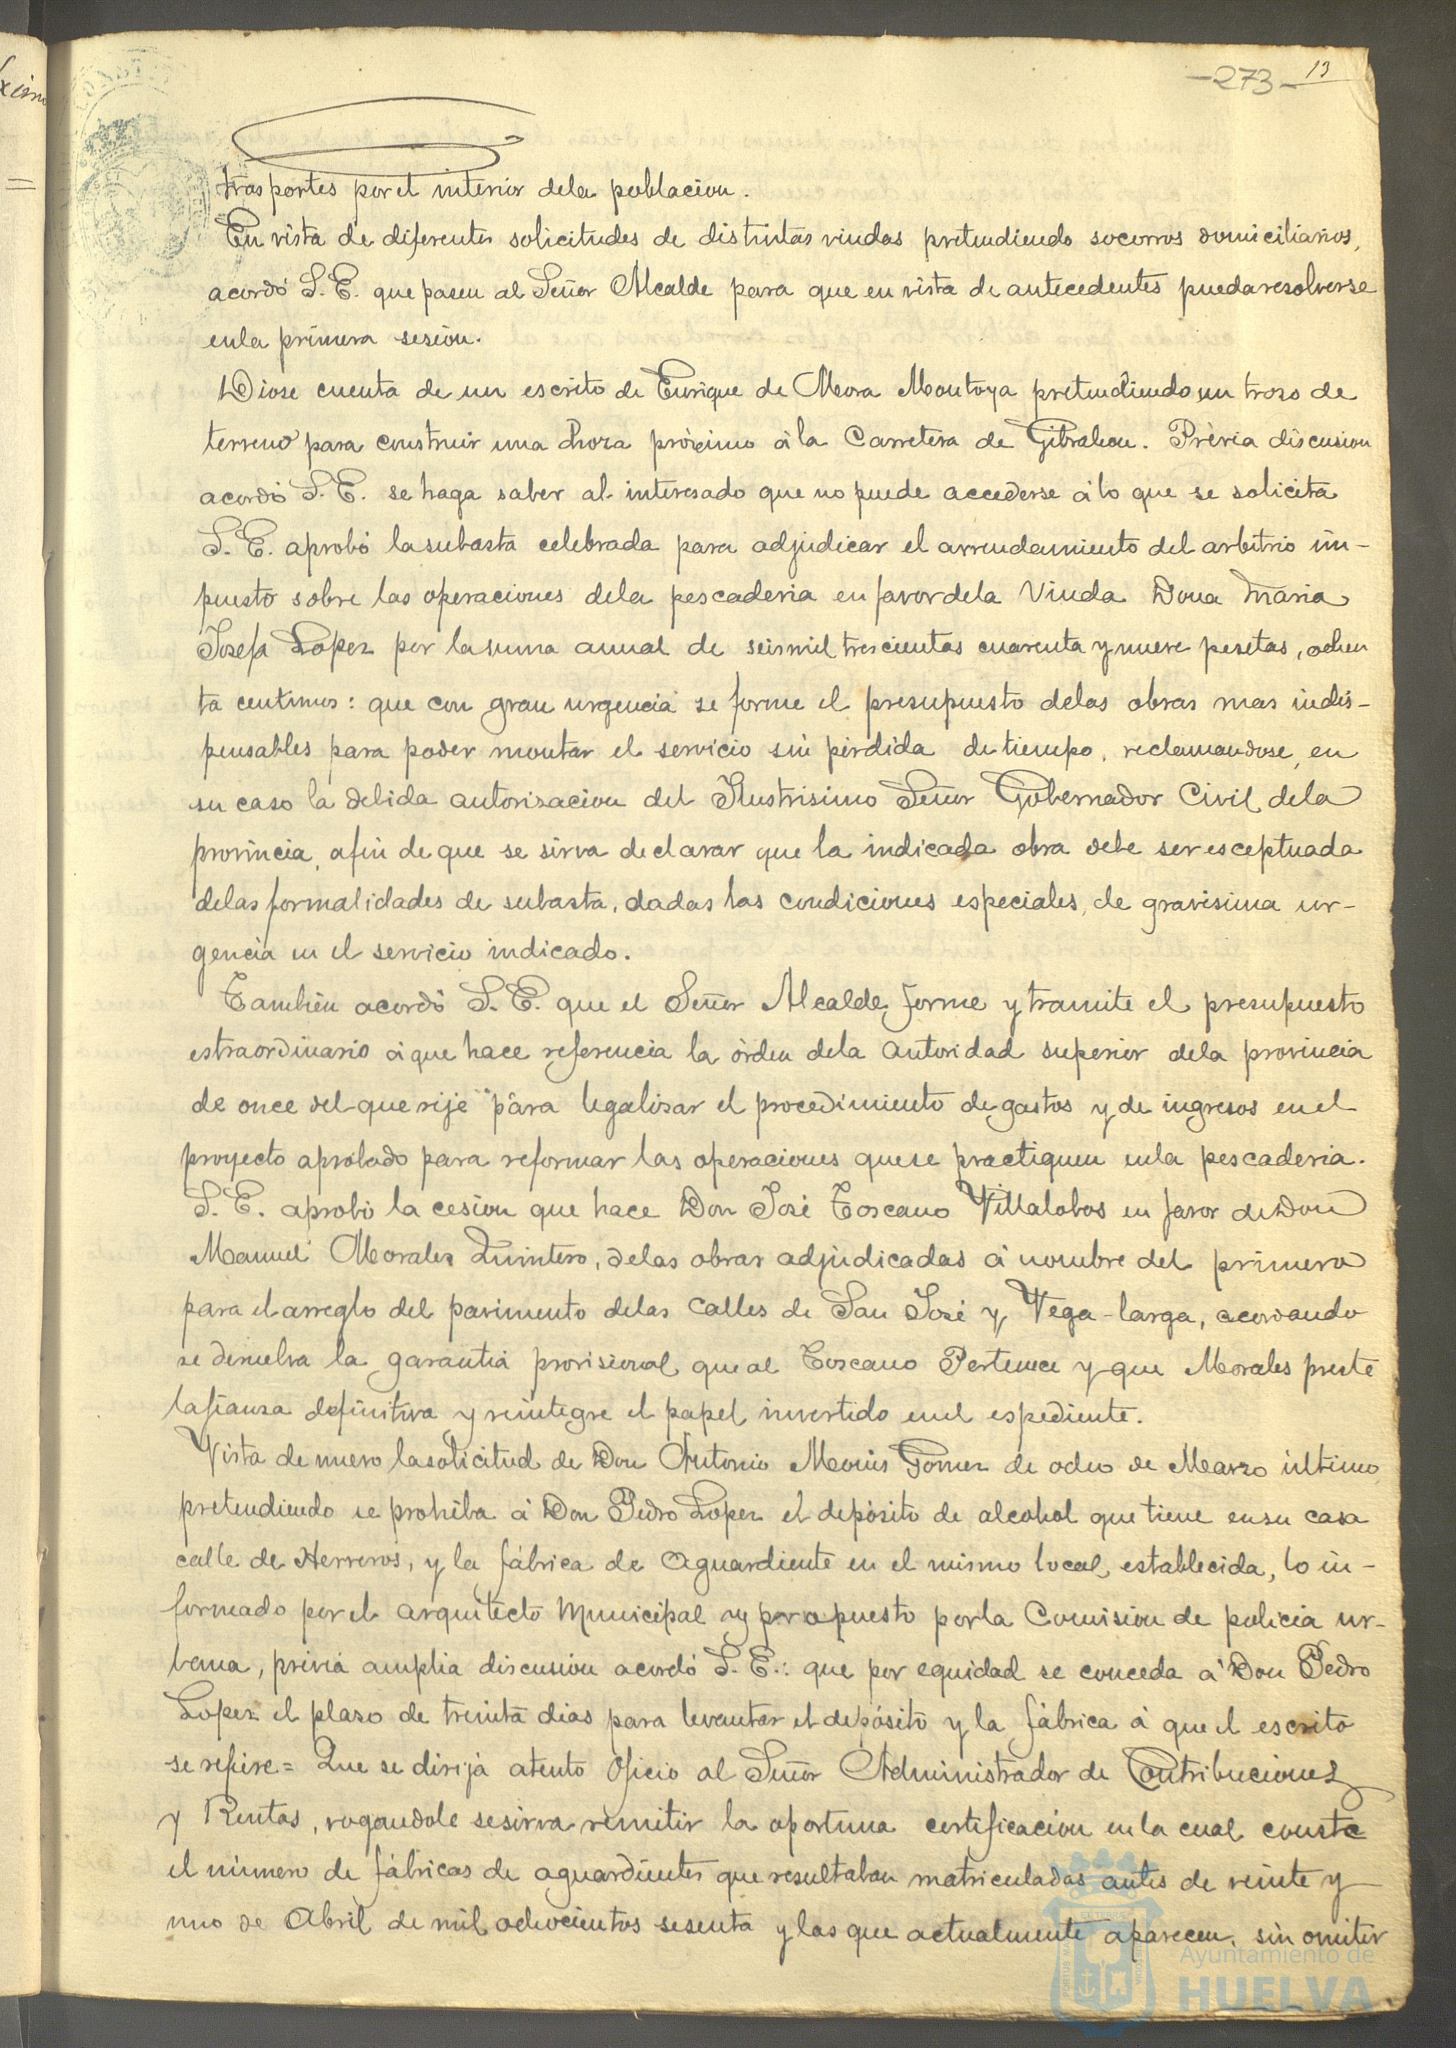 -273- 13
trasportes por el interior dela poblacion.
En vista de diferentes solicitudes de distintas viudas pretendiendo socorros domiciliarios,
acordó S. E. que pasen al Señor Alcalde para que en vista de antecedentes pueda resolverse
enla primera sesion.
Diose cuenta de un escrito de Enrique de Mora Montoya pretendiendo un trozo de
terreno para construir una choza próximo á la Carretera de Gibraleon. Prévia discusion
acordó S. E. se haga saber al interesado que no puede accederse á lo que se solicita
S. E. aprobó la subasta celebrada para adjudicar el arrendamiento del arbitrio im-
puesto sobre las operaciones dela pescaderia en favor dela Viuda Doña Maria
Josefa Lopez por la suma anual de seis mil trescientas cuarenta y nueve pesetas, ochen
ta centimos: que con gran urgencia se forme el presupuesto delas obras mas indis-
pensables para poder montar el servicio sin pérdida de tiempo, reclamandose, en
su caso la debida autorizacion del Ilustrisimo Señor Gobernador Civil dela
provincia, afin de que se sirva declarar que la indicada obra debe ser esceptuada
delas formalidades de subasta, dadas las condiciones especiales, de gravisima ur-
gencia en el servicio indicado.
Tambien acordó S. E. que el Señor Alcalde forme y tramite el presupuesto
estraordinario á que hace referencia la órden dela autoridad superior dela provincia
de once del que rije para legalizar el procedimiento de gastos y de ingresos en el
proyecto aprobado para reformar las operaciones que se practiquen enla pescaderia.
S. E. aprobó la cesion que hace Don José Toscano Villalobos en favor de Don
Manuel Morales Quintero, delas obras adjudicadas á nombre del primero
para el arreglo del pavimento delas calles de San José y Vega-larga, acordando
se devuelva la garantia provisional que al Toscano Pertenece y que Morales preste
la fianza definitiva y reintegre el papel invertido en el espediente.
Vista de nuevo la solicitud de Don Antonio Gomez de ocho de Marzo último
pretendiendo se prohiba á Don Pedro Lopez el depósito de alcohol que tiene en su casa
calle de Herreros, y la fábrica de aguardiente en el mismo local establecida, lo in-
formado por el arquitecto Municipal y propuesto por la Comision de policia ur-
bana, prévia amplia discusion acordó S. E.: que por equidad se conceda á Don Pedro
Lopez el plazo de treinta dias para levantar el depósito y la fábrica á que el escrito
se refiere= Que se dirija atento oficio al Señor Administrador de Contribuciones
y Rentas, rogandole se sirva remitir la oportuna certificacion en la cual conste
el número de fábricas de aguardientes que resultaban matriculadas antes de veinte y
uno de Abril de mil ochocientos sesenta y las que actualmente aparecen, sin omitir
Ayuntamiento de
HUELVA